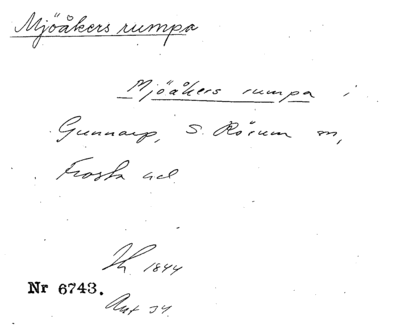 Mjöåkers rumpa
Mjöåkers rumpa i
Gunnarp, S. Rörum sn,
Frosta hd
Sk. 1844
Nr 6743.
Akt 34